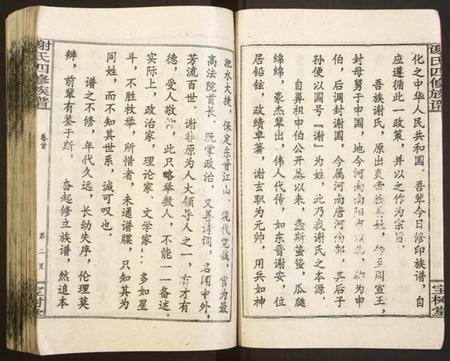 谢氏四修族谱
化之中华人民共和国。吾辈今日修印族谱,自
应遵循此一政策,并以之作为宗旨。
吾族谢氏,原出炎帝族姜姓,传至周宣王,
封母舅于申国,地今河南南阳市以北,称为申
伯,后调封谢国,今属河南唐河南部,其后子
孙便以国号「谢」为姓,此乃我谢氏之本源。
自鼻祖申伯公开基以来,螽斯蛰蛰,瓜瓞
绵绵,豪杰辈出,伟人代传,如东晋谢安,位
居铅铉,政绩卓著,谢玄职为元帅,用兵如神
宝树堂
谢氏四修族谱
卷首
第二页
宝树堂
淝水大捷,保定东晋江山。现代觉哉,官为最
高法院首长,既掌政治,又善诗词,名闻中外,
芳流百世。谢非原为人大领导人之一,有才有
德,受人敬仰,此只略举数人,不能一一备述。
实际上,政治家,理论家,文学家……多如星
斗,不胜枚举,所惜者,未通谱牒,只知其为
同姓,而不知其世系,诚可叹也。
谱之不修,年代久远,长幼失序,伦理莫
辨,前辈有鉴于斯,奋起修立族谱,然追本